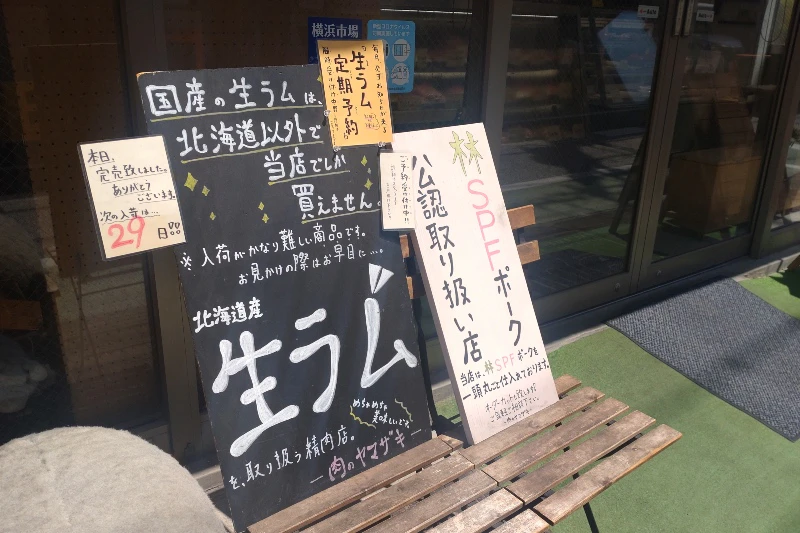 横浜市場
生ラム
定期予約
本日、
完売致しました。
ありがとう
ございます。
次の入荷は…
29日
国産の生ラムは、
北海道以外で
当店でしか
買えません。
※入荷がかなり難しい商品です。
お見かけの際はお早目に…。
北海道産
生ラム
めちゃめちゃ
美味しいです
を、取り扱う精肉店。
肉のヤマザキ
林SPFポーク
公認取り扱い店
当店は、林SPFポークを
一頭丸ごと仕入れております。